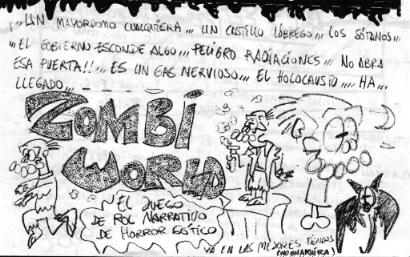 ¡,,, UN MAYORDOMO CUALQUIERA,,, UN CASTILLO LÓBREGO,,, LOS SÓTANOS"
"EL GOBIERNO ESCONDE ALGO,,, PELIGRO RADIACIONES,,, NO ABRA
ESA PUERTA!!,,, ES UN GAS NERVIOSO,,, EL HOLOCAUSTO,,,, HA,,,
LLEGADO,,,,
ZOMBI
WORLD
EL JUEGO
DE ROL NARRATIVO
DE HORROR GÓTICO
YA EN LAS MEJORES TIENDAS